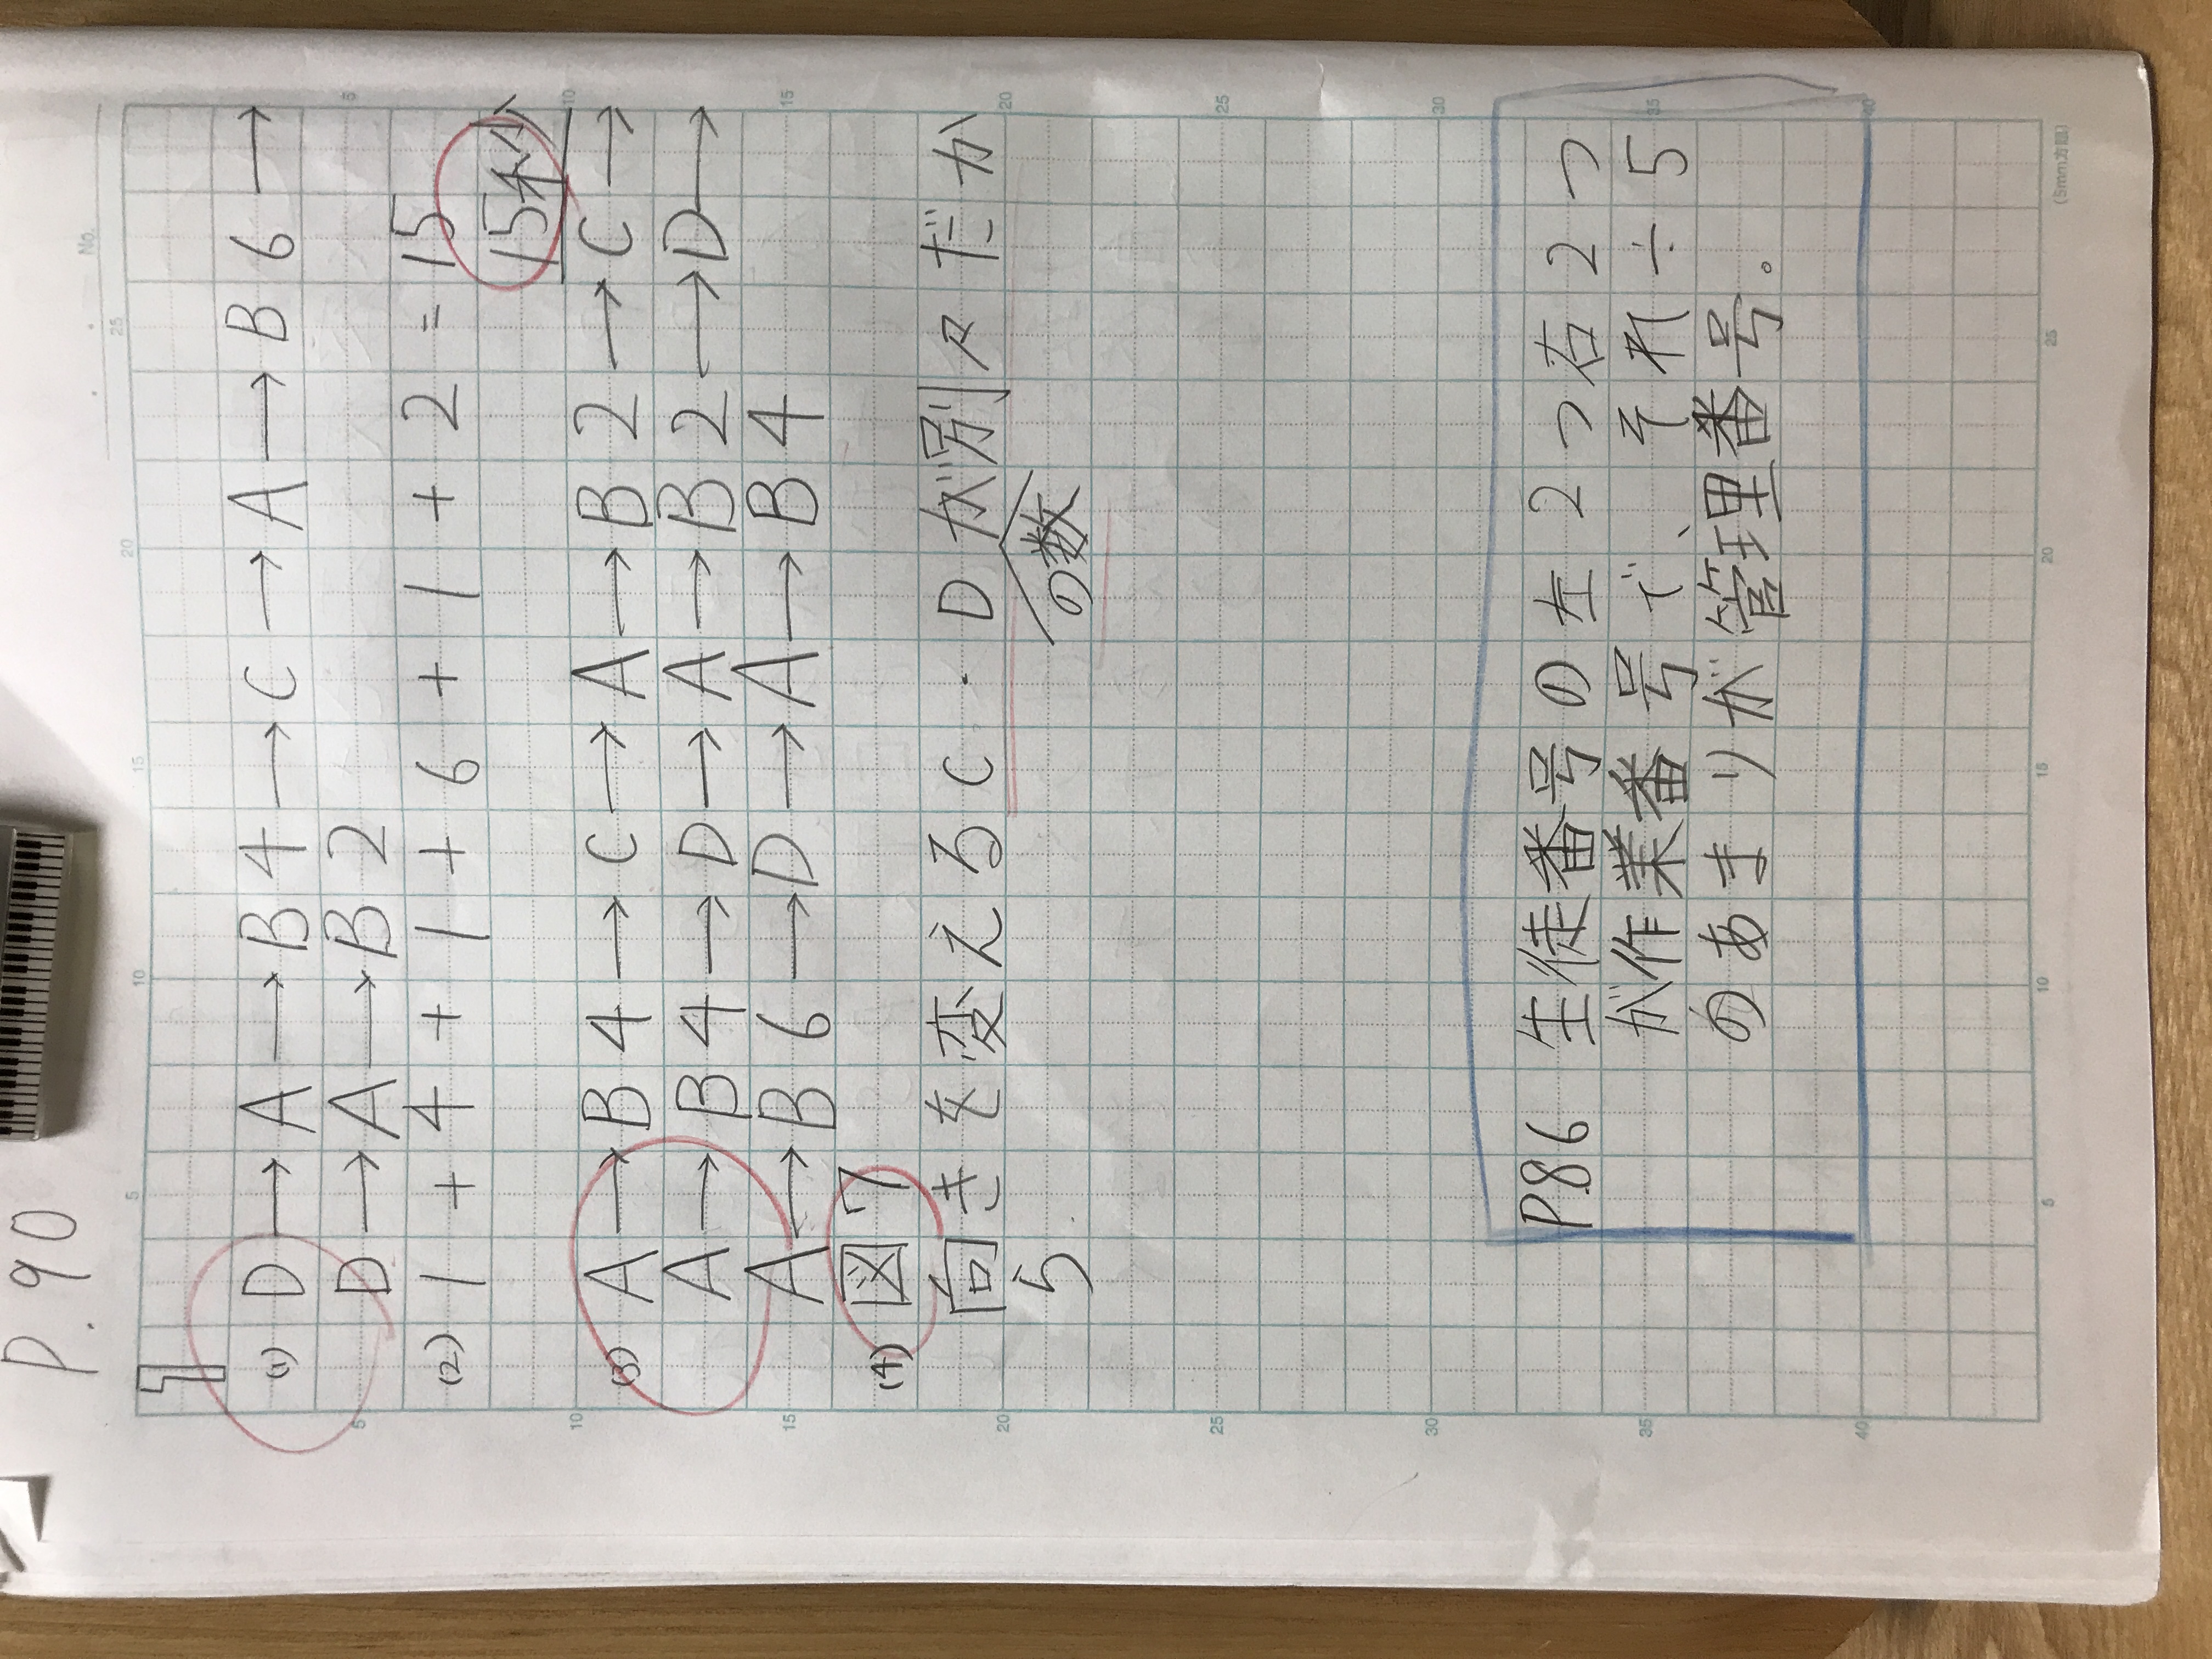 P.90
No.
1
(1) D→A→B4→C→A→B6→
D→A→B2
(2) 1+4+1+6+1+2=15
15秒
(3) A→B4→C→A→B2→C→
A→B4→D→A→B2→D→
A→B6→D→A→B4
(4) 図7
向きを変えるC・Dが別々だか
の数
ら
P.86 生徒番号の左2つ右2つ
が作業番号で、それ÷5
のあまりが管理番号。
(5mm方眼)